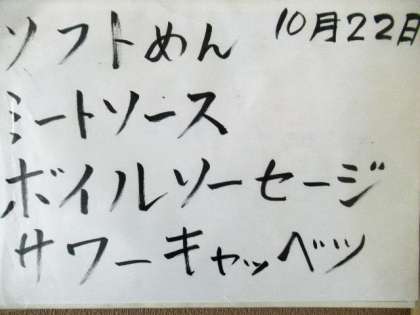 ソフトめん 10月22日
ミートソース
ボイルソーセージ
サワーキャッベツ